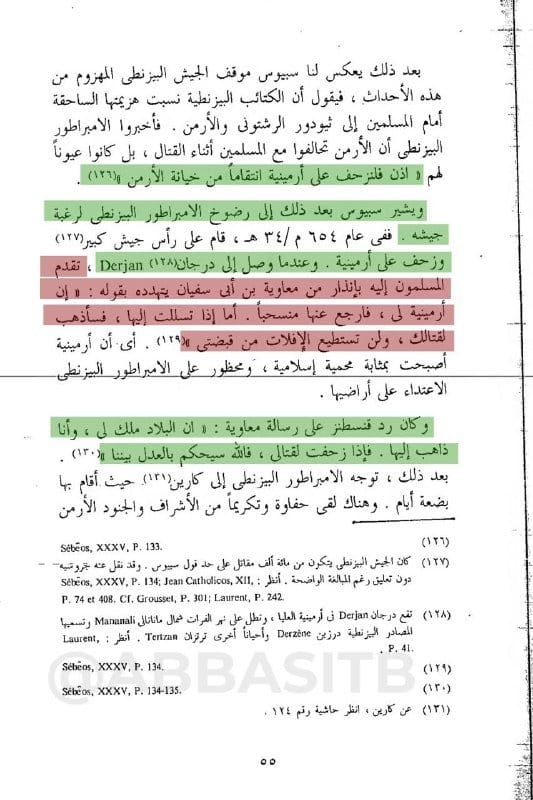 بعد ذلك يعكس لنا سبيوس موقف الجيش البيزنطى المهزوم من
هذه الأحداث ، فيقول أن الكتائب البيزنطية نسبت هزيمتها الساحقة
أمام المسلمين إلى ثيودور الرشتونى والأرمن . فأخبروا الامبراطور
البيزنطى أن الأرمن تحالفوا مع المسلمين أثناء القتال ، بل كانوا عيوناً
لهم « اذن فلنزحف على أرمينية انتقاماً من خيانة الأرمن »(١٢٦) .
ويشير سبيوس بعد ذلك إلى رضوخ الامبراطور البيزنطى لرغبة
جيشه . ففى عام ٦٥٤ م /٣٤ هـ ، قام على رأس جيش كبير(١٢٧)
وزحف على أرمينية . وعندما وصل إلى درجان(١٢٨) Derjan ، تقدم
المسلمون إليه بإنذار من معاوية بن أبى سفيان يتهدده بقوله : « إن
أرمينية لى ، فارجع عنها منسحباً . أما إذا تسللت إليها ، فسأذهب
لقتالك ، ولن تستطيع الإفلات من قبضتى »(١٢٩) . أى أن أرمينية
أصبحت بمثابة محمية إسلامية ، ومحظور على الامبراطور البيزنطى
الاعتداء على أراضيها .
وكان رد قنسطنز على رسالة معاوية : « ان البلاد ملك لى ، وأنا
ذاهب إليها . فإذا زحفت لقتالى ، فالله سيحكم بالعدل بيننا »(١٣٠) .
بعد ذلك ، توجه الامبراطور البيزنطى إلى كارين(١٣١) حيث أقام بها
بضعة أيام . وهناك لقى حفاوة وتكريماً من الأشراف والجنود الأرمن
(١٢٦) Sébêos, XXXV, P. 133.
(١٢٧) كان الجيش البيزنطى يتكون من مائة ألف مقاتل على حد قول سبيوس . وقد نقل عنه جروسيه
دون تعليق رغم المبالغة الواضحة . أنظر : Sébêos, XXXV, P. 134; Jean Catholicos, XII,
P. 74 et 408. Cf. Grousset, P. 301; Laurent, P. 242.
(١٢٨) تقع درجان Derjan فى أرمينية العليا ، وتطل على نهر الفرات شمال مانانالى Mananali وتسميها
المصادر البيزنطية درزين Derzène وأحياناً أخرى ترتزان Tertzan . أنظر : Laurent,
P. 41.
(١٢٩) Sébêos, XXXV, P. 134.
(١٣٠) Sébêos, XXXV, P. 134-135.
(١٣١) عن كارين ، انظر حاشية رقم ١٢٤ .
@ABBASITB
٥٥